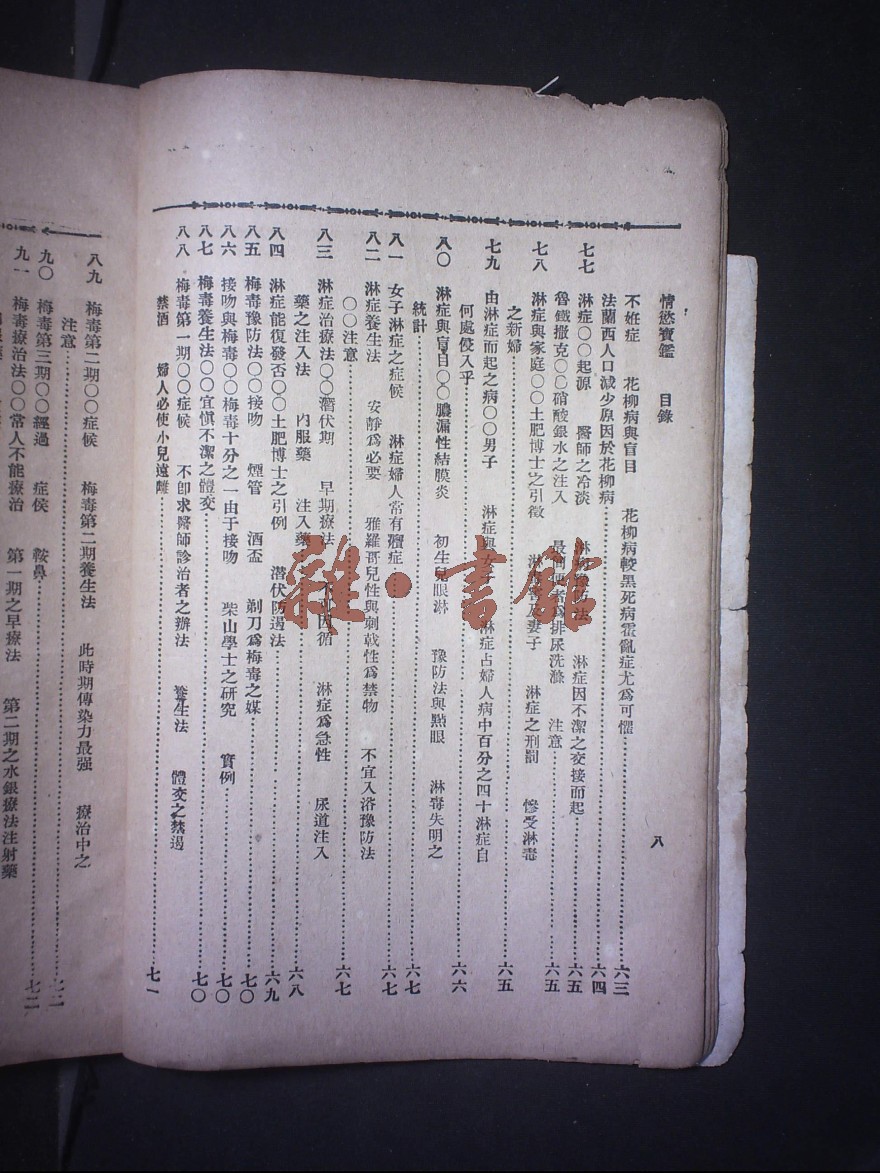 情慾寶鑑　目錄　八
不姙症　花柳病與盲目　花柳病較黑死病霍亂症尤爲可懼……六三
法蘭西人口減少原因於花柳病……六四
七七　淋症〇〇起源　醫師之冷淡　淋病豫防法　淋症因不潔之交接而起……六五
魯鐵撒克〇〇硝酸銀水之注入　最簡便者爲排尿洗滌　注意……六五
七八　淋症與家庭〇〇土肥博士之引徵　及妻子　淋症之刑罰　慘受淋毒
之新婦……六五
七九　由淋症而起之病〇〇男子　淋症與女子　淋症占婦人病中百分之四十淋症自
何處侵入乎……六六
八〇　淋症與盲目〇〇膿漏性結膜炎　初生兒眼淋　豫防法與點眼　淋毒失明之
統計……六七
八一　女子淋症之症候　淋症婦人常有癪症……六七
八二　淋症養生法　安靜爲必要　雅羅哥兒性與刺戟性爲禁物　不宜入浴豫防法
〇〇注意……六七
八三　淋症治療法〇〇潛伏期　早期療法　不可因循　淋症爲急性　尿道注入
藥之注入法　內服藥　注入藥……六八
八四　淋症能復發否〇〇土肥博士之引例　潛伏防遏法……六九
八五　梅毒豫防法〇〇接吻　煙管　酒盃　剃刀爲梅毒之媒……七〇
八六　接吻與梅毒〇〇梅毒十分之一由于接吻　柴山學士之研究　實例……七〇
八七　梅毒養生法〇〇宜慎不潔之體交……七〇
八八　梅毒第一期〇〇症候　不卽求醫師診治者之辦法　養生法　體交之禁遏
禁酒　婦人必使小兒遠離……七一
八九　梅毒第二期〇〇症候　梅毒第二期養生法　此時期傳染力最强　療治中之
注意……七二
九〇　梅毒第三期〇〇經過　症候　鞍鼻……七二
九一　梅毒療治法〇〇常人不能療治　第一期之早療法　第二期之水銀療法注射藥